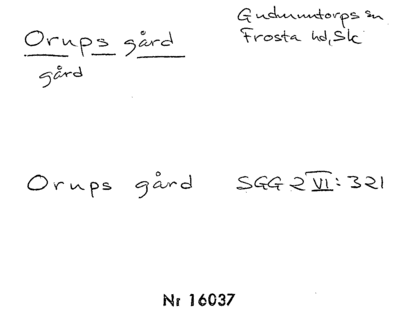 Orups gård
gård
Gudmuntorps sn
Frosta hd, Sk
Orups gård SGG 2 VI: 321
Nr 16037